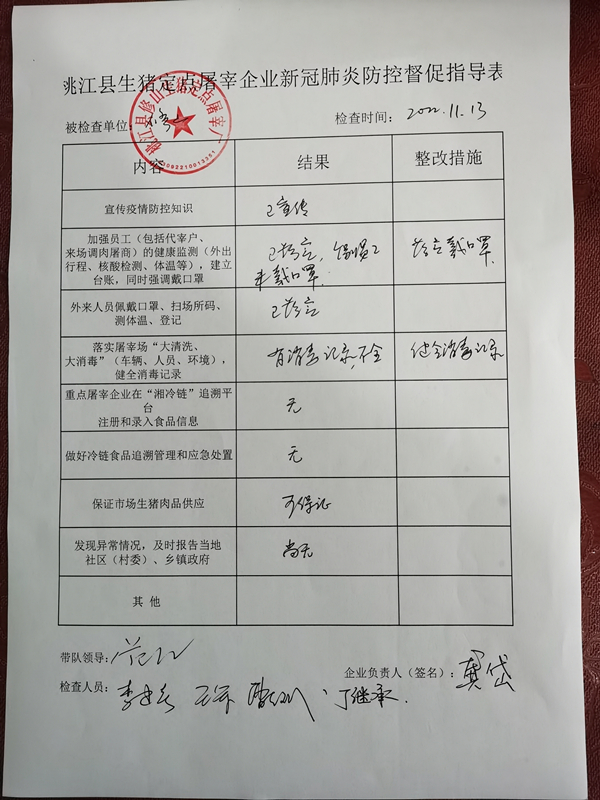 桃江县生猪定点屠宰企业新冠肺炎防控督促指导表
桃江县修山生猪定点屠宰厂
被检查单位: 修山
检查时间: 2022.11.13
内容 结果 整改措施
宣传疫情防控知识 已宣传
加强员工（包括代宰户、
来场调肉屠商）的健康监测（外出
行程、核酸检测、体温等），建立
台账，同时强调戴口罩
已落实，个别员工
未戴口罩.
落实戴口罩.
外来人员佩戴口罩、扫场所码、
测体温、登记
已落实
落实屠宰场“大清洗、
大消毒”（车辆、人员、环境），
健全消毒记录
有消毒记录,不全
健全消毒记录
重点屠宰企业在“湘冷链”追溯平
台
注册和录入食品信息
无
做好冷链食品追溯管理和应急处置 无
保证市场生猪肉品供应 可保证
发现异常情况，及时报告当地
社区（村委）、乡镇政府
尚无
其 他
带队领导:
企业负责人（签名）: 龚岱
检查人员: 丁继承.